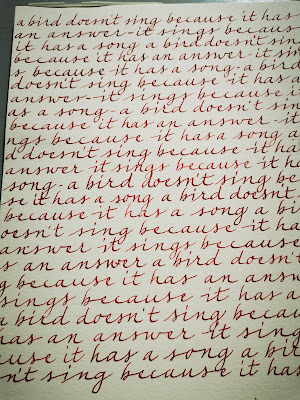 a bird doesn't sing because it has
an answer-it sings because
it has a song a bird doesn't sin
because it has an answer-it sin
s because it has a song. a bird
doesn't sing because it has a
answer-it sings because i
as a song-a bird doesn't sin
because it has an answer-it
ngs because it has a song a
d doesn't sing because it ha
answer it sings because it h
song-a bird doesn't sing be
se it has a song a bird doesn't
because it has a song a bi
oesn't sing because it ha
answer it sings because
as an answer a bird doesn't
g because it has an answ
sings because it has a
a bird doesn't sing becau
has an answer it sing
ause it has a song a bird
n't sing because it has